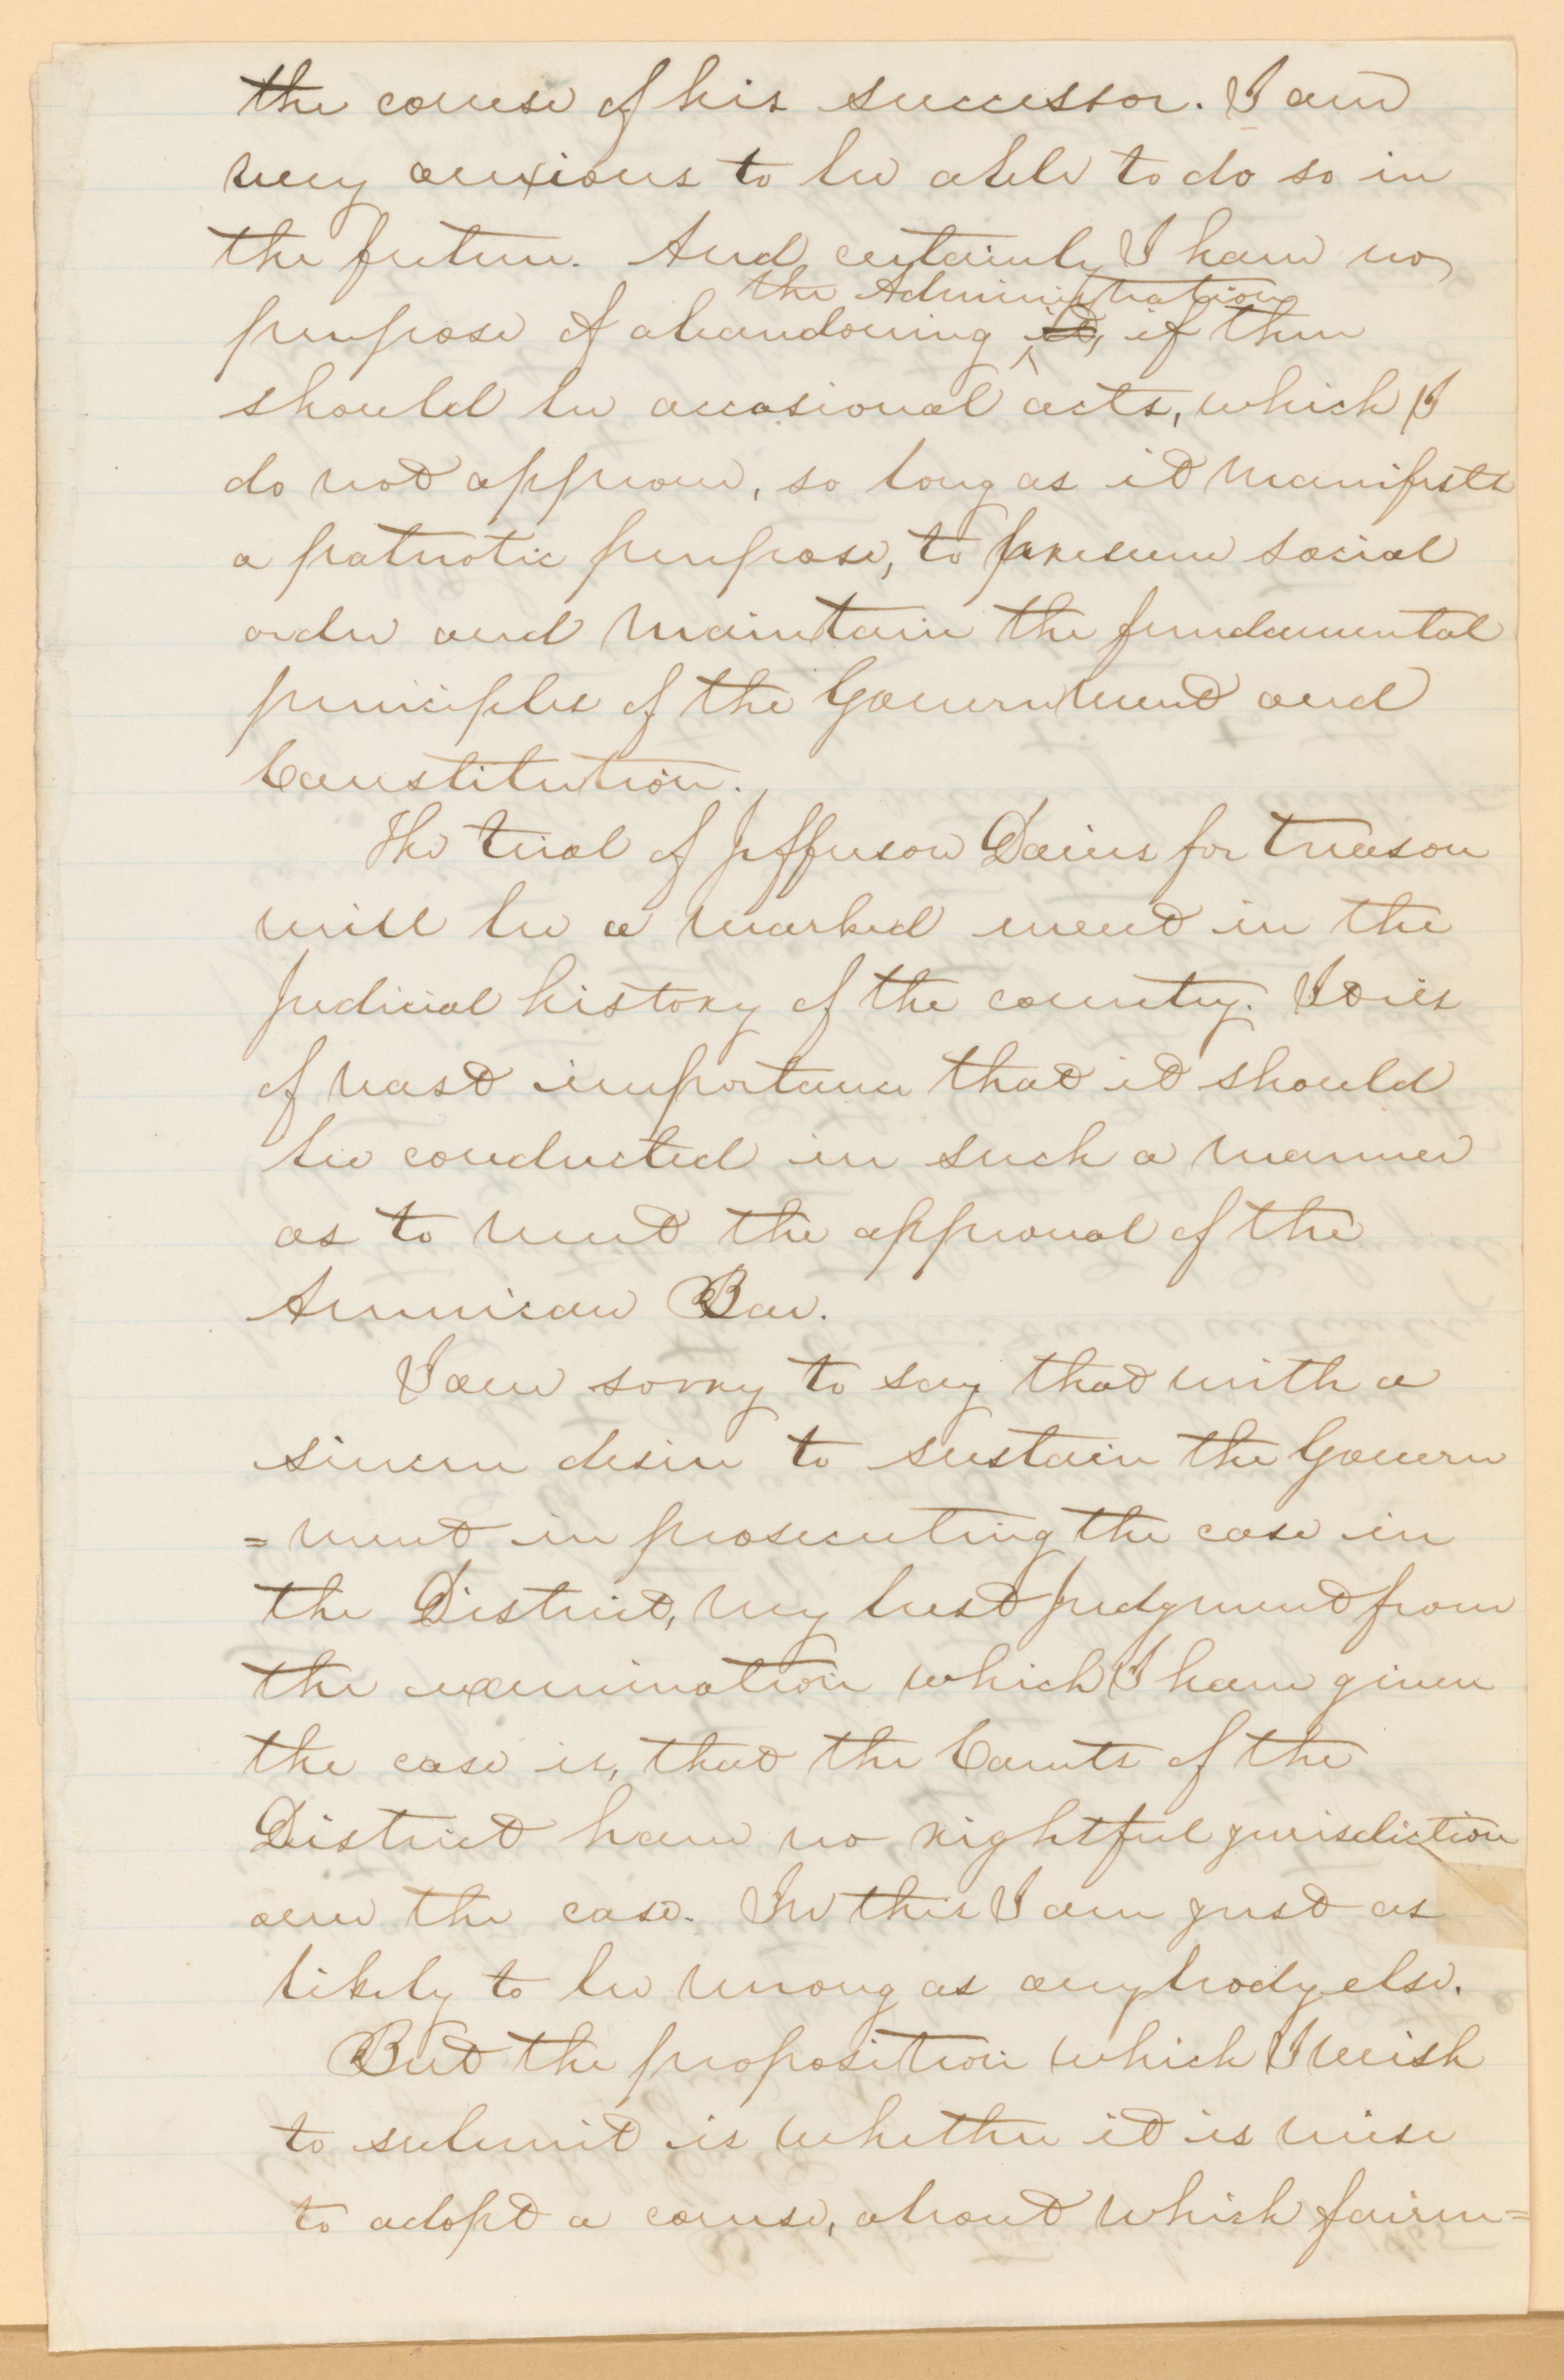 the course of his successor. I am
very anxious to be able to do so in
the future. And certainly I have no
the Administration
purpose of abandoning it, if there
should be occasional acts, which I
do not approve, so long as it manifests
a patriotic purpose, to preserve social
order and maintain the fundamental
principles of the Government and
Constitution.
The trial of Jefferson Davis for treason
will be a marked event in the
judicial history of the country. It is
of vast importance that it should
be conducted in such a manner
as to meet the approval of the
American Bar.
I am sorry to say that with a
sincere desire to sustain the Govern
=ment in prosecuting the case in
the District, my best judgment from
the examination which I have given
the case is, that the Courts of the
District have no rightful jurisdiction
over the case. In this I am just as
likely to be wrong as anybody else.
But the proposition which I wish
to submit is whether it is wise
to adopt a course, about which fairm=